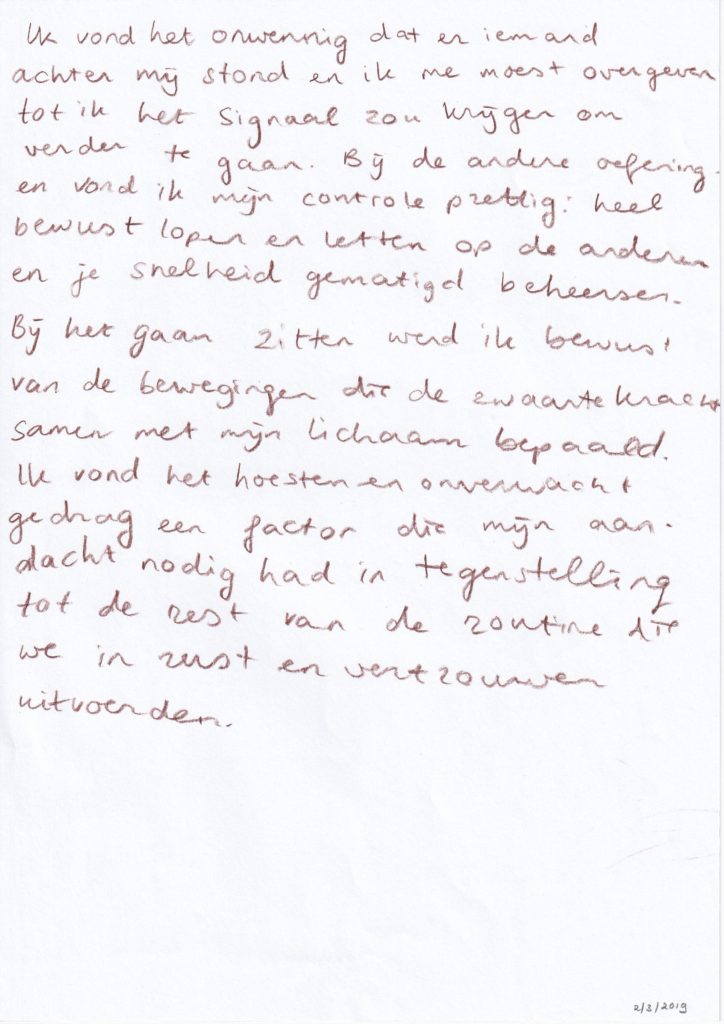 Ik vond het onwennig dat er iemand
achter mij stond en ik me moest overgeven
tot ik het signaal zou krijgen om
verder te gaan. Bij de andere oefening-
en vond ik mijn controle prettig: heel
bewust lopen en letten op de anderen
en je snelheid gematigd beheersen.
Bij het gaan zitten werd ik bewust
van de bewegingen die de zwaartekracht
samen met mijn lichaam bepaald.
Ik vond het hoesten en onverwacht
gedrag een factor die mijn aan-
dacht nodig had in tegenstelling
tot de rest van de routine die
we in rust en vertrouwen
uitvoerden.
2/3/2019